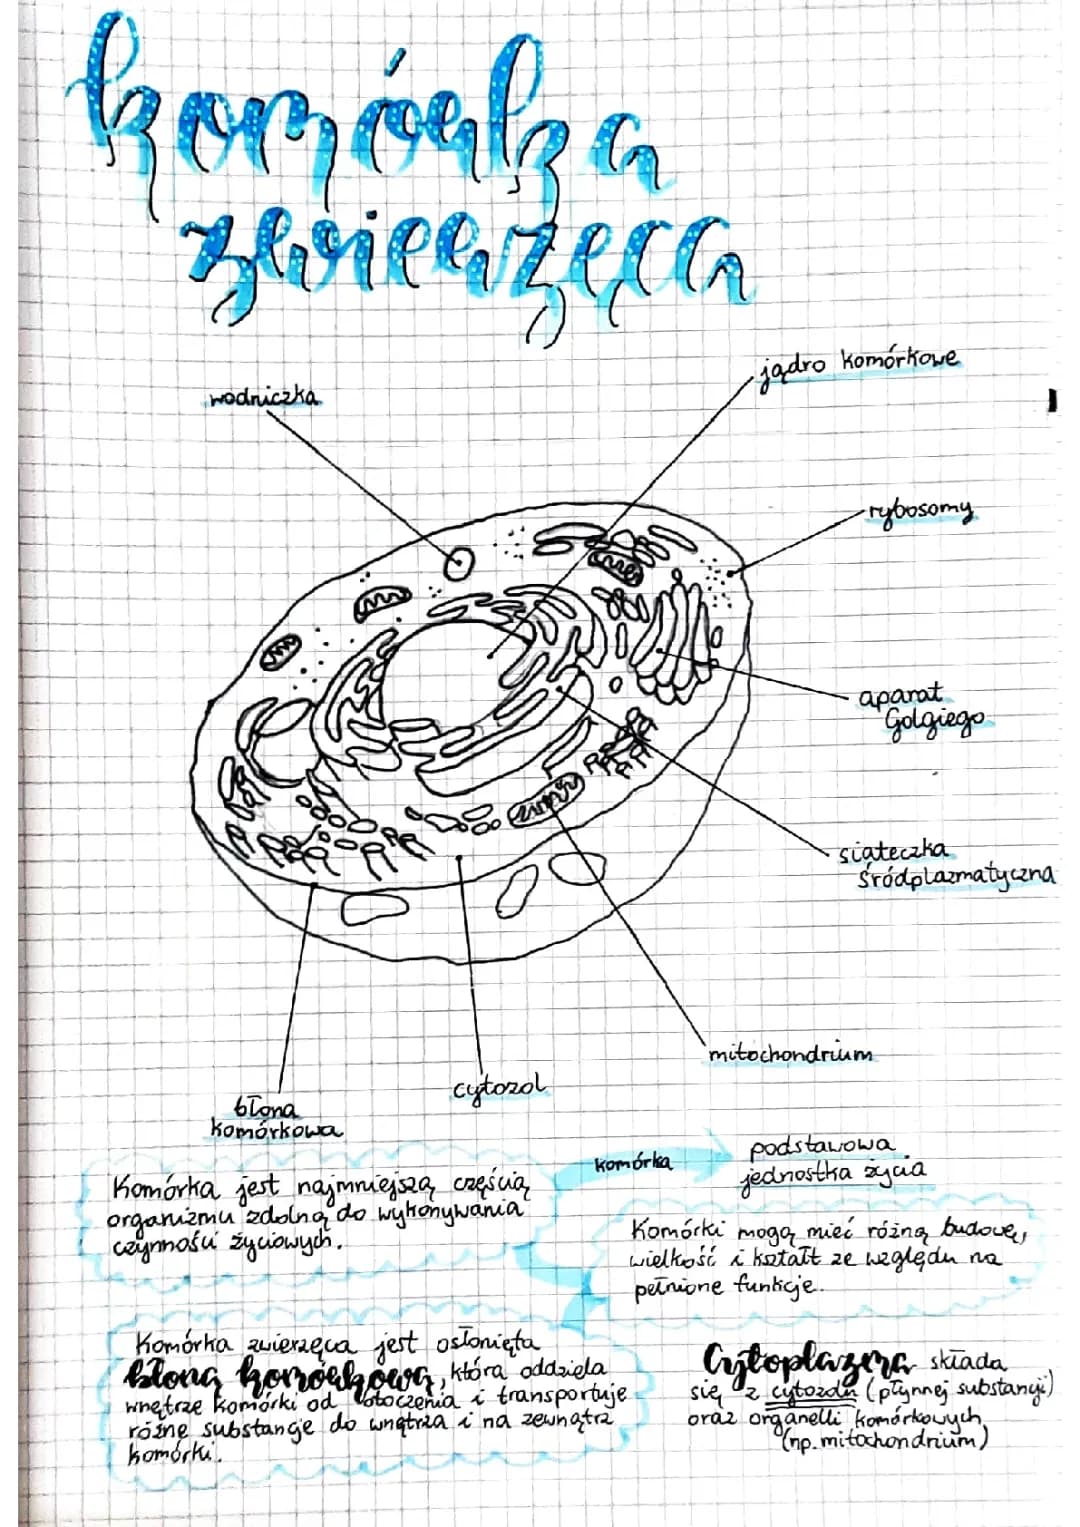 komórka
zwierzęca
jądro komórkowe
wodniczka
rybosomy
aparat
Golgiego
siateczka
śródplazmatyczna
mitochondrium
cytozol
błona
komórkowa
komórka
podstawowa
jednostka życia
Komórka jest najmniejszą częścią
organizmu zdolną do wykonywania
czynności życiowych.
Komórki mogą mieć różną budowę,
wielkość i kształt ze względu na
pełnione funkcje.
Komórka zwierzęca jest osłonięta
błoną komórkową, która oddziela
wnętrze komórki od otoczenia i transportuje
różne substancje do wnętrza i na zewnątrz
komórki.
Cytoplazma składa
się z cytozolu (płynnej substancji)
oraz organelli komórkowych
(np. mitochondrium)